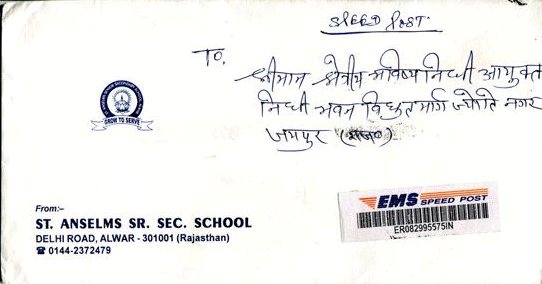 SPEED POST.
TO,
श्रीमान क्षेत्रीय भविष्य निधी आयुक्त
निधी भवन विधुत मार्ग ज्योति नगर
जयपुर (राज०)
GROW TO SERVE
From:-
ST. ANSELMS SR. SEC. SCHOOL
DELHI ROAD, ALWAR - 301001 (Rajasthan)
☎ 0144-2372479
EMS SPEED POST
ER082995575IN